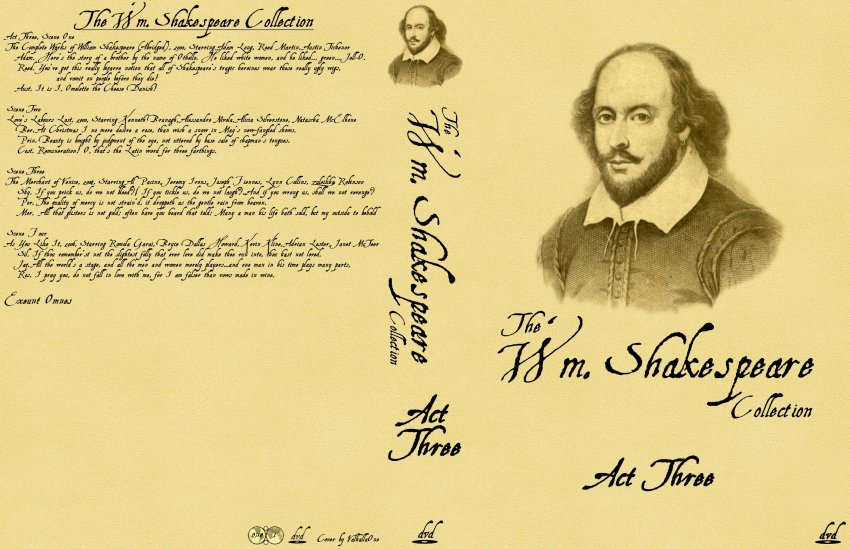 The Wm. Shakespeare Collection
Act Three, Scene One
The Complete Works of William Shakespeare (Abridged), 2000, Starring Adam Long, Reed Martin, Austin Tichenor
Adam. Here's the story of a brother by the name of Othello. He liked white women, and he liked... green... Jell-O.
Reed. You've got this really bizarre notion that all of Shakespeare's tragic heroines wear these really ugly wigs,
and vomit on people before they die!
Aust. It is I, Omelette the Cheese Danish!
Scene Two
Love's Labours Lost, 2000, Starring Kenneth Branagh, Alessandro Nivola, Alicia Silverstone, Natascha McElhone
Ber. At Christmas I no more desire a rose, than wish a snow in May's new-fangled shows.
Prin. Beauty is bought by judgment of the eye, not uttered by base sale of chapmen's tongues.
Cost. Remuneration! O, that's the Latin word for three farthings.
Scene Three
The Merchant of Venice, 2004, Starring Al Pacino, Jeremy Irons, Joseph Fiennes, Lynn Collins, Zuleikha Robinson
Shy. If you prick us, do we not bleed? If you tickle us, do we not laugh? And if you wrong us, shall we not revenge?
Por. The quality of mercy is not strain'd, it droppeth as the gentle rain from heaven.
Mor. All that glisters is not gold; often have you heard that told: Many a man his life hath sold, but my outside to behold
Scene Four
As You Like It, 2006, Starring Romola Garai, Bryce Dallas Howard, Kevin Kline, Adrian Lester, Janet McTeer
Sil. If thou remember'st not the slightest folly that ever love did make thee run into, thou hast not loved.
Jaq. All the world's a stage, and all the men and women merely players...and one man in his time plays many parts.
Ros. I pray you, do not fall in love with me, for I am falser than vows made in wine.
Exeunt Omnes
one 1
dvd
Cover by ValhallaOne
The
Wm. Shakespeare
Collection
Act
Three
dvd
The
Wm. Shakespeare
Collection
Act Three
dvd